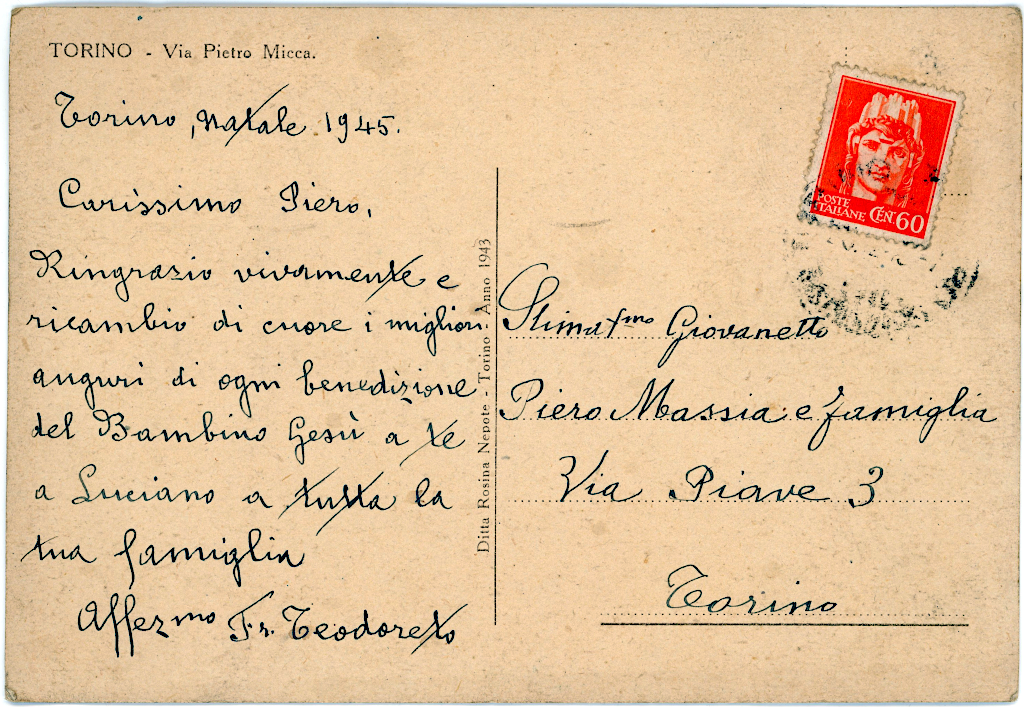 TORINO - Via Pietro Micca.
Torino, natale 1945.
Carissimo Piero,
Ringrazio vivamente e
ricambio di cuore i migliori
auguri di ogni benedizione
del Bambino Gesù a te
a Luciano a tutta la
tua famiglia
Affezmo Fr. Teodoreto
Ditta Rosina Nepote - Torino - Anno 1943
POSTE
ITALIANE CEN. 60
Stimatmo Giovanetto
Piero Massia e famiglia
Via Piave 3
Torino